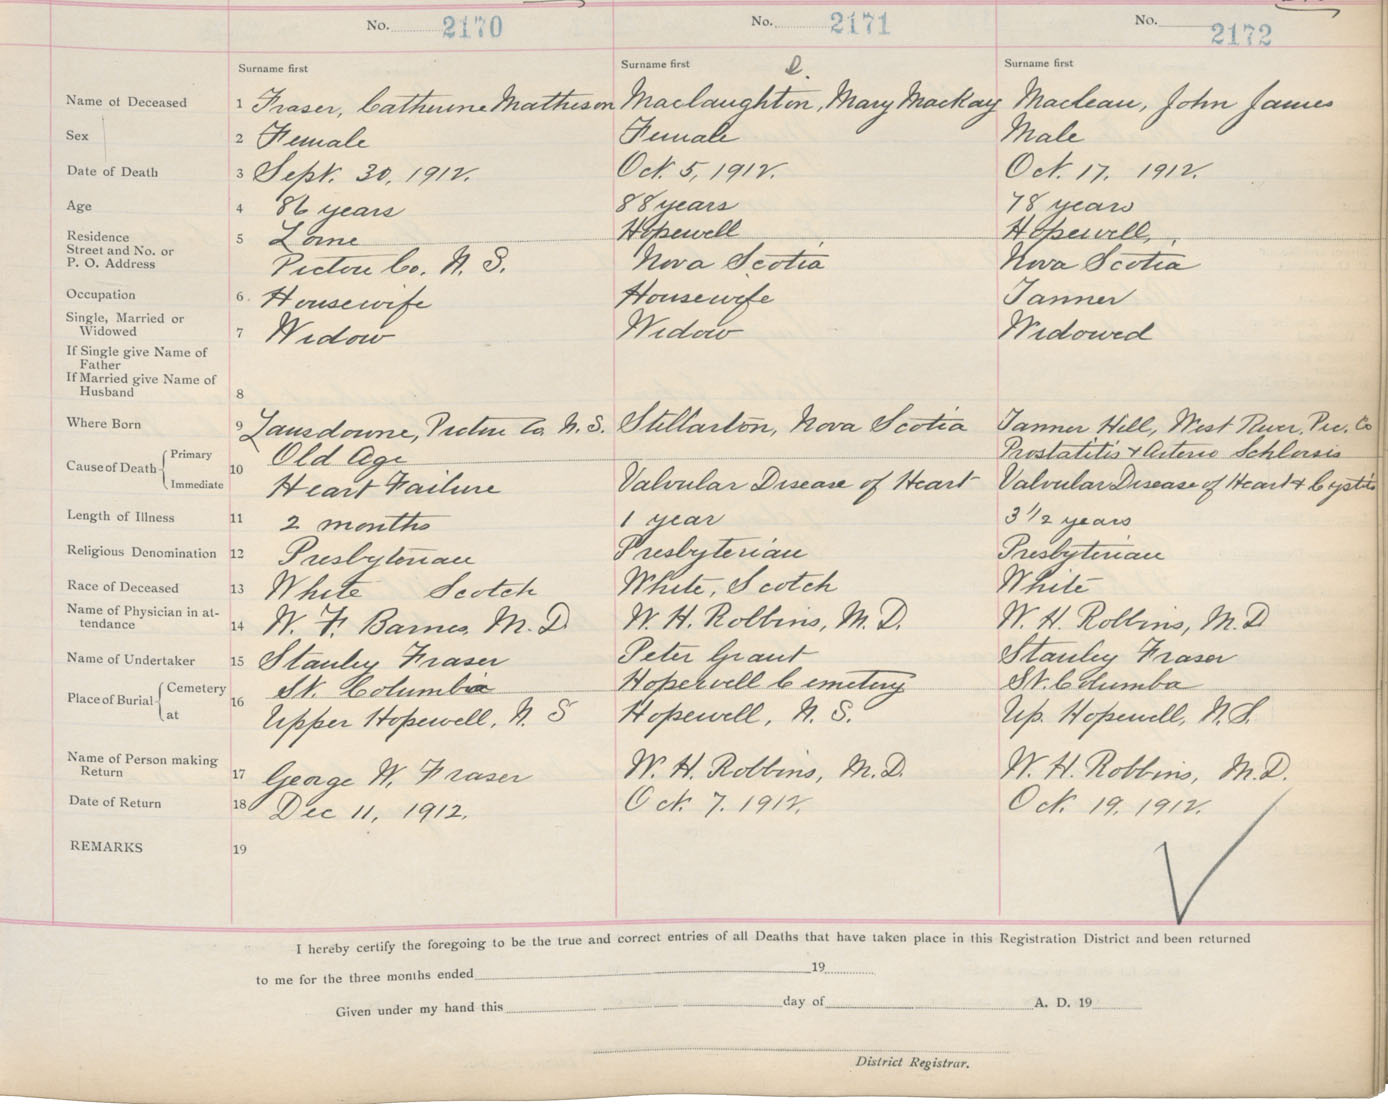 No. 2170 No. 2171 No. 2172
Surname first Surname first Surname first
e.
Name of Deceased 1 Fraser, Catherine Matheson Maclaughton, Mary MacKay Maclean, John James
Sex 2 Female Female Male
Date of Death 3 Sept. 30, 1912. Oct. 5, 1912. Oct. 17. 1912.
Age 4 86 years 88 years 78 years
Residence 5 Lorne Hopewell Hopewell,
Street and No. or
P. O. Address Pictou Co. N. S. Nova Scotia Nova Scotia
Occupation 6 Housewife Housewife Tanner
Single, Married or
Widowed 7 Widow Widow Widowed
If Single give Name of
Father
If Married give Name of
Husband 8
Where Born 9 Lansdowne, Pictou Co. N. S. Stellarton, Nova Scotia Tanner Hill, West River, Pic. Co
Cause of Death Primary Old Age Prostatitis & Arterio Schlorsis
10
Immediate Heart Failure Valvular Disease of Heart Valvular Disease of Heart & Cystitis
Length of Illness 11 2 months 1 year 3 1/2 years
Religious Denomination 12 Presbyterian Presbyterian Presbyterian
Race of Deceased 13 White Scotch White, Scotch White
Name of Physician in at-
tendance 14 W. F. Barnes, M. D. W. H. Robbins, M. D. W. H. Robbins, M. D
Name of Undertaker 15 Stanley Fraser Peter Grant Stanley Fraser
Place of Burial Cemetery St. Columbia Hopewell Cemetery St. Columba
16
at Upper Hopewell, N. S Hopewell, N. S. Up. Hopewell, N. S.
Name of Person making
Return 17 George W. Fraser W. H. Robbins, M. D. W. H. Robbins, M. D.
Date of Return 18 Dec 11, 1912. Oct. 7. 1912. Oct. 19. 1912.
REMARKS 19
I hereby certify the foregoing to be the true and correct entries of all Deaths that have taken place in this Registration District and been returned
to me for the three months ended 19
Given under my hand this day of A. D. 19
District Registrar.